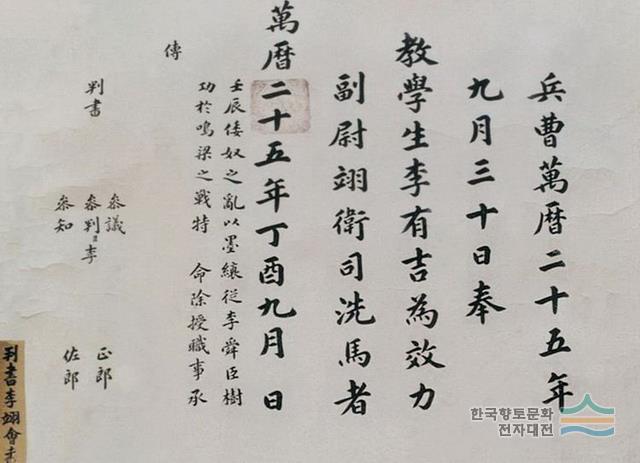 兵曹萬曆二十五年
九月三十日奉
教學生李有吉為效力
副尉翊衛司洗馬者
萬曆二十五年丁酉九月 日
壬辰倭奴之亂以墨縗從李舜臣樹
功於鳴梁之戰特 命除授職事承
傳
判書
參議
參判 李
參知
正郎
佐郎
判書李翊會書
한국향토문화
전자대전